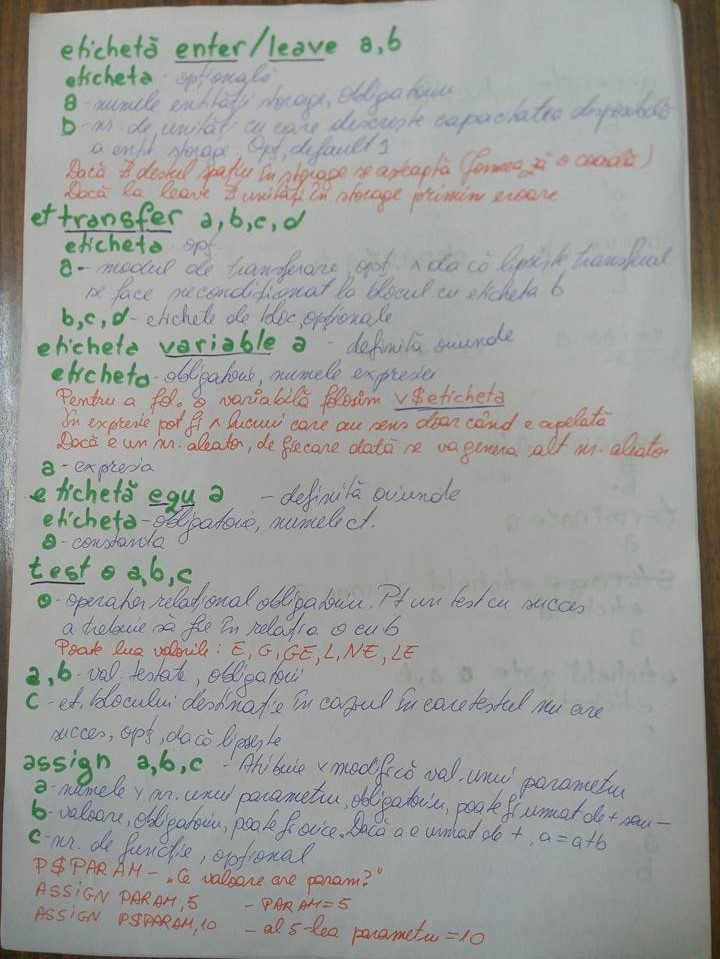 etichetă enter/leave a,b
eticheta - opțională
a - numele entității storage, obligatoriu
b - nr. de unități cu care descrește capacitatea disponibilă
a entit. storage. Opț, default 1
Dacă ∄ destul spațiu în storage se așteaptă (formează o coadă)
Dacă la leave ∄ unități în storage primim eroare
et transfer a,b,c,d
eticheta - opț.
a - modul de transferare, opț. dacă lipsește transferul
se face necondiționat la blocul cu eticheta b
b,c,d - etichete de bloc, opționale
eticheta variable a - definită oriunde
eticheta - obligatorie, numele expresiei
Pentru a fol. o variabilă folosim v$eticheta
În expresie pot fi și lucruri care au sens doar când e apelată
Dacă e un nr. aleator, de fiecare dată se va genera alt nr. aleator
a - expresia
etichetă equ a - definită oriunde
eticheta - obligatorie, numele ct.
a - constanta
test o a,b,c
o - operator relațional obligatoriu. Pt un test cu succes
a trebuie să fie în relația o cu b
Poate lua valorile: E, G, GE, L, NE, LE
a,b - val. testate, obligatorii
c - et. blocului destinație în cazul în care testul nu are
succes, opț, dacă lipsește
assign a,b,c - Atribuie modifică val. unui parametru
a - numele nr. unui parametru, obligatoriu, poate fi urmat de + sau -
b - valoare, obligatoriu, poate fi orice. Dacă a e urmat de +, a=a+b
c - nr. de funcție, opțional
P$PARAM - „Ce valoare are param?"
ASSIGN PARAM,5 - PARAM=5
ASSIGN P$PARAM,10 - al 5-lea parametru=10